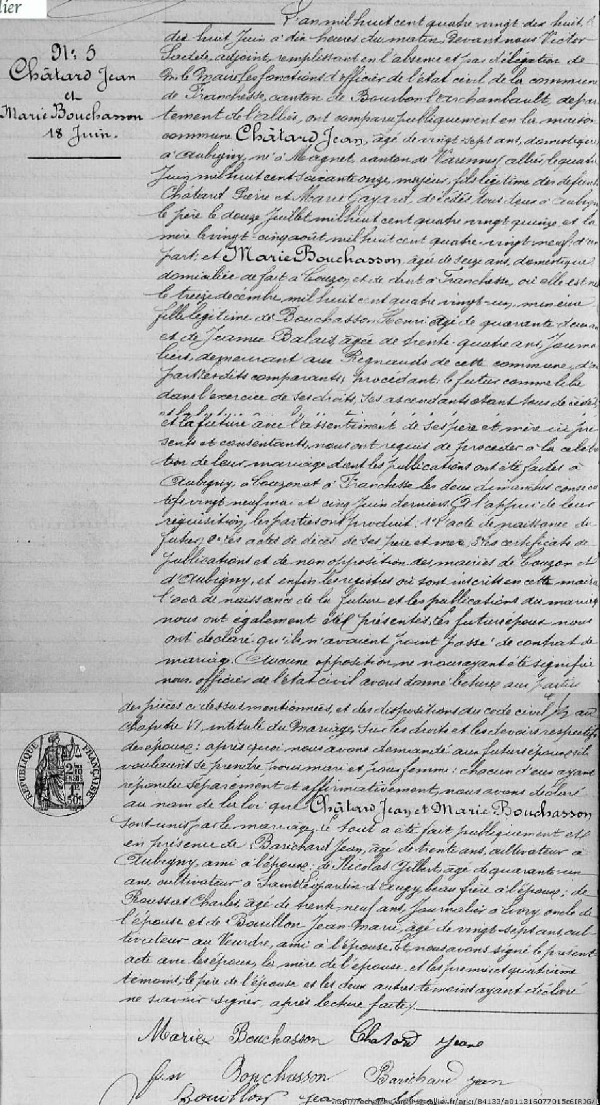 lier
N°: 5
Châtard Jean
et
Marie Bouchasson
18 Juin.
L'an mil huit cent quatre vingt dix huit, le
dix huit Juin à dix heures du matin, devant nous Victor
adjoint, remplissant en l'absence et par délégation de
M. le Maire, les fonctions d'officier de l'état civil de la commune
de Franchesse, canton de Bourbon l'archambault, dépar-
tement de l'allier, ont comparu publiquement en la maison
commune Châtard Jean, âgé de vingt sept ans, domestique
à Aubigny, né à Magnet, canton de Varennes, allier, le quatre
Juin mil huit cent soixante onze, majeur, fils légitime des défunts
Châtard Pierre et Marie Cayard, décédés tous deux à Aubigny
le père le douze Juillet mil huit cent quatre vingt quinze et la
mère le vingt cinq août mil huit cent quatre vingt neuf, d'une
part; et Marie Bouchasson, âgée de seize ans, domestique
domiciliée de fait à Couzon et de droit à Franchesse, où elle est née
le treize décembre mil huit cent quatre vingt un, mineure
fille légitime de Bouchasson Henri âgé de quarante deux ans
et de Jeanne Balais, âgée de trente quatre ans, Journa-
liers, demeurant aux Regnauds de cette commune, d'autre
part; lesdits comparants, procédant, le futur comme libre
dans l'exercice de ses droits, ses ascendants étant tous décédés,
et la future avec l'assentiment de ses père et mère ici pré-
sents et consentants, nous ont requis de procéder à la célébra-
tion de leur mariage dont les publications ont été faites à
Aubigny, à Couzon et à Franchesse les deux dimanches consécu-
tifs vingt neuf mai et cinq Juin derniers. A l'appui de leur
requisition, les parties ont produit: 1° l'acte de naissance du
futur, 2° les actes de décès de ses père et mère, 3° les certificats de
publications et de non opposition des mairies de Couzon et
d'Aubigny, et enfin les registres où sont inscrits en cette mairie
l'acte de naissance de la future et les publications du mariage
nous ont également été présentés. Les futurs époux nous
ont déclaré qu'ils n'avaient point passé de contrat de
mariage. Aucune opposition ne nous ayant été signifiée
nous, officier de l'état civil avons donné lecture aux parties
des pièces ci dessus mentionnées, et des dispositions du code civil au
chapitre VI intitulé du Mariage, sur les droits et les devoirs respectifs
des époux; après quoi, nous avons demandé aux futurs époux s'ils
voulaient se prendre pour mari et pour femme: chacun d'eux ayant
répondu séparément et affirmativement, nous avons déclaré
au nom de la loi que Châtard Jean et Marie Bouchasson
sont unis par le mariage. Le tout a été fait publiquement et
en présence de Barichard Jean, âgé de trente ans, cultivateur à
Aubigny, ami à l'époux; de Nicolas Gilbert, âgé de quarante un
ans, cultivateur à Saint Léopardin d'Augy, beau frère à l'époux; de
Roussat Charles âgé de trente neuf ans, Journalier à Livry oncle de
l'épouse et de Bouillon Jean Marie, âgé de vingt sept ans, cul-
tivateur au Veurdre, ami à l'épouse. Et nous avons signé le présent
acte avec les époux, la mère de l'épouse, et les premier et quatrième
témoins, le père de l'épouse et les deux autres témoins ayant déclaré
ne savoir signer, après lecture faite.
RÉPUBLIQUE FRANÇAISE
Marie Bouchasson Chatard Jean
fm Bouchasson Barichard jean
Bouillon jean